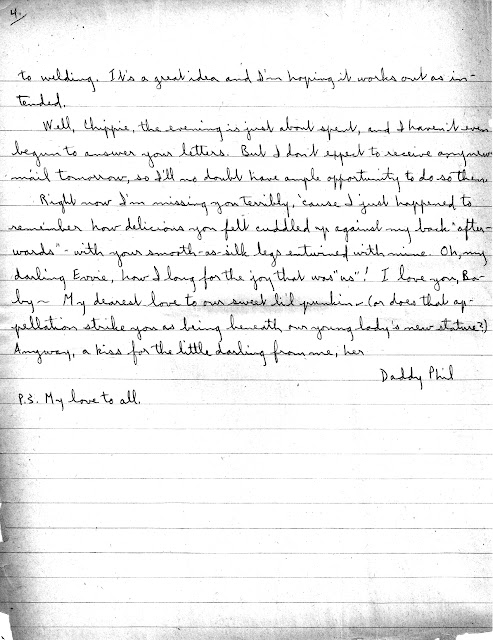 4.
to welding. It's a great idea and I'm hoping it works out as in-
tended.
Well, Chippie, the evening is just about spent, and I haven't even
begun to answer your letters. But I don't expect to receive any new
mail tomorrow, so I'll no doubt have ample opportunity to do so then.
Right now I'm missing you terribly, 'cause I just happened to
remember how delicious you felt cuddled up against my back "after-
wards" - with your smooth-as-silk legs entwined with mine. Oh, my
darling Evvie, how I long for the joy that was "us"! I love you, Ba-
by ~ My dearest love to our sweet lil punkin - (or does that ap-
pellation strike you as being beneath our young lady's new stature?)
Anyway, a kiss for the little darling from me, her
Daddy Phil
P.S. My love to all.